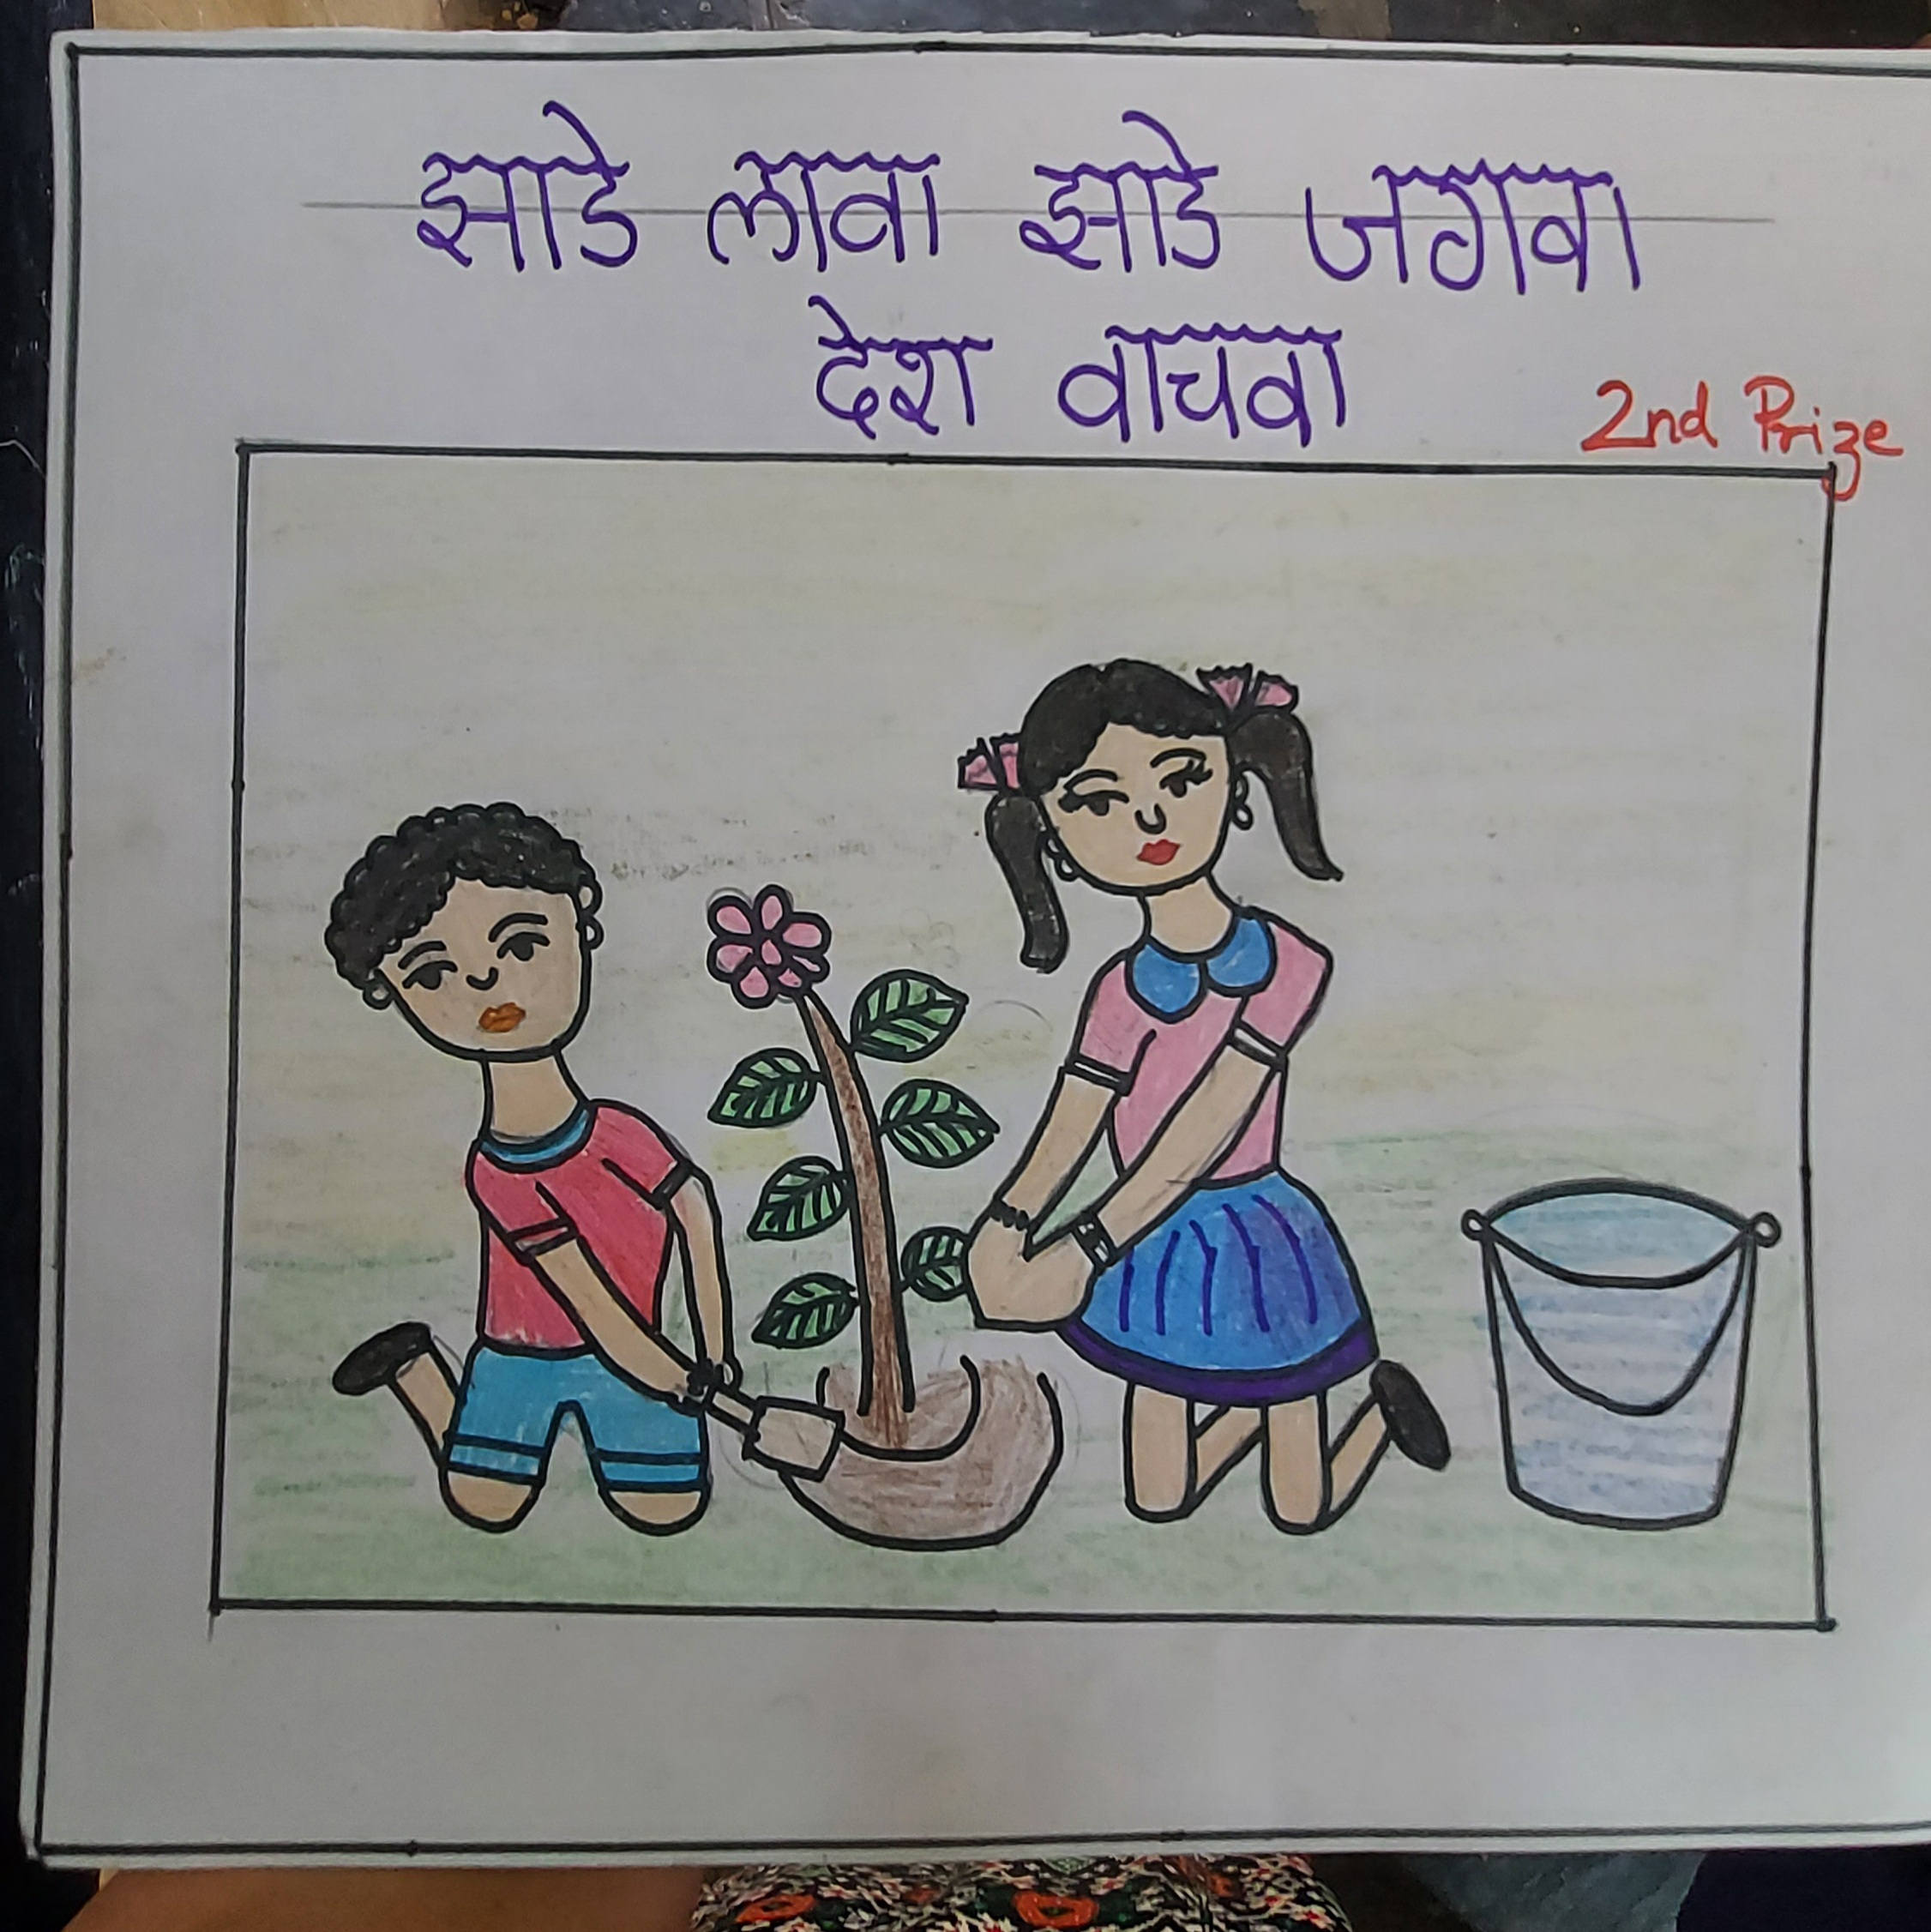 झाडे लावा झाडे जगवा
देश वाचवा
2nd Prize